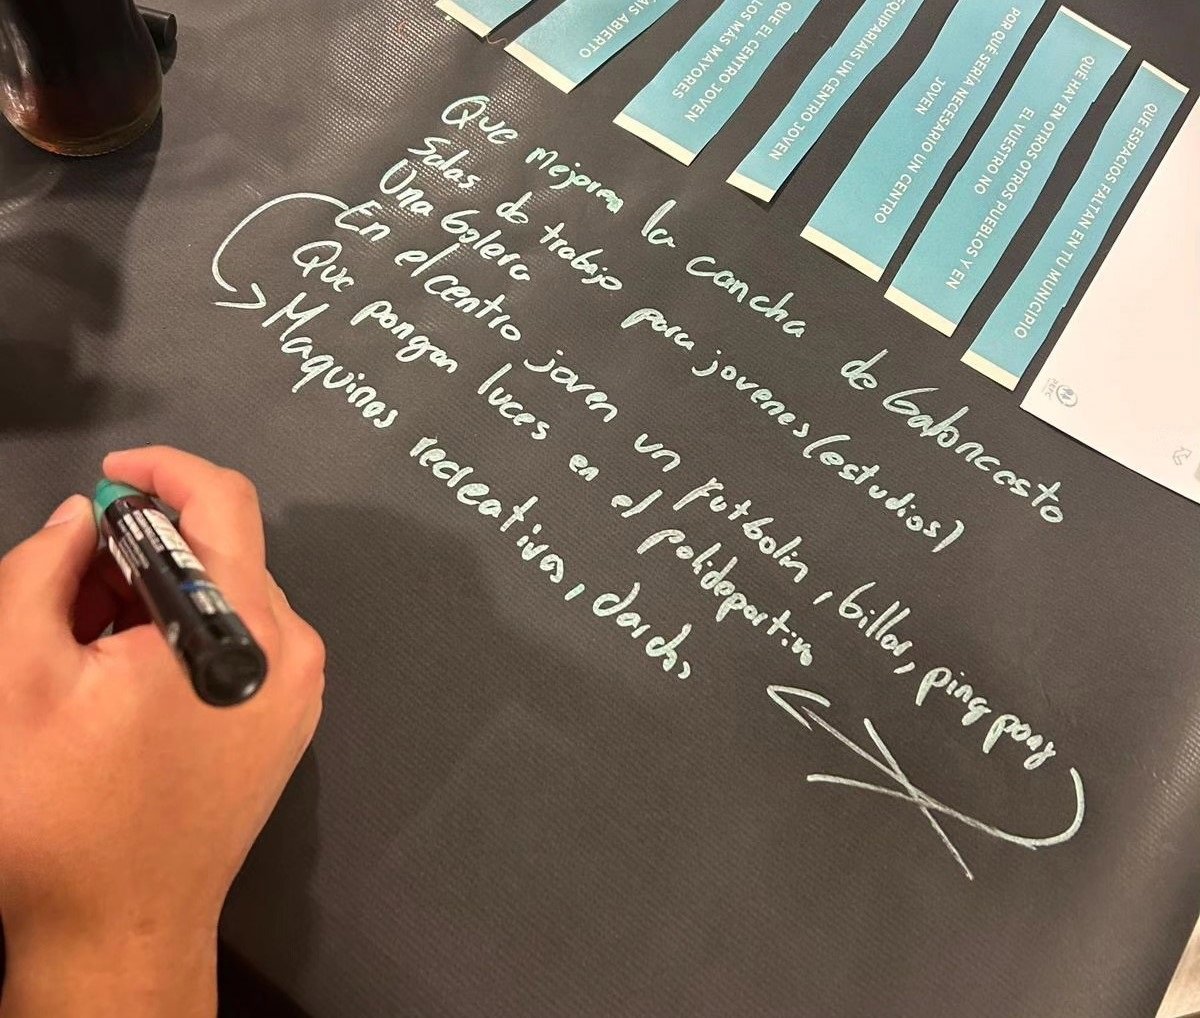 Que mejoren la cancha de baloncesto
Salas de trabajo para jovenes (estudios)
Una bolera
En el centro joven un futbolín, billar, ping pong
Que pongan luces en el polideportivo
Maquinas recreativas, dardos
ABIERTO
QUE EL CENTRO JOVEN
LOS MAS MAYORES
EQUIPARÍAIS UN CENTRO JOVEN
POR QUÉ SERÍA NECESARIO UN CENTRO
JOVEN
QUÉ HAY EN OTROS OTROS PUEBLOS Y EN
EL VUESTRO NO
QUE ESPACIOS FALTAN EN TU MUNICIPIO